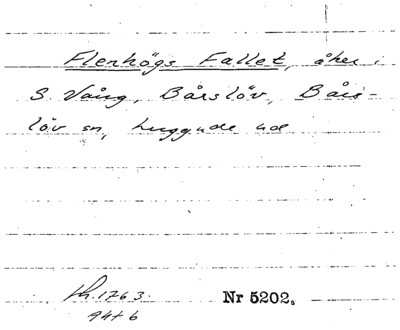 Flenhögs Fallet, åker i
S. Vång, Bårslöv, Bårs-
löv sn, Luggude hd
1763. Nr 5202.